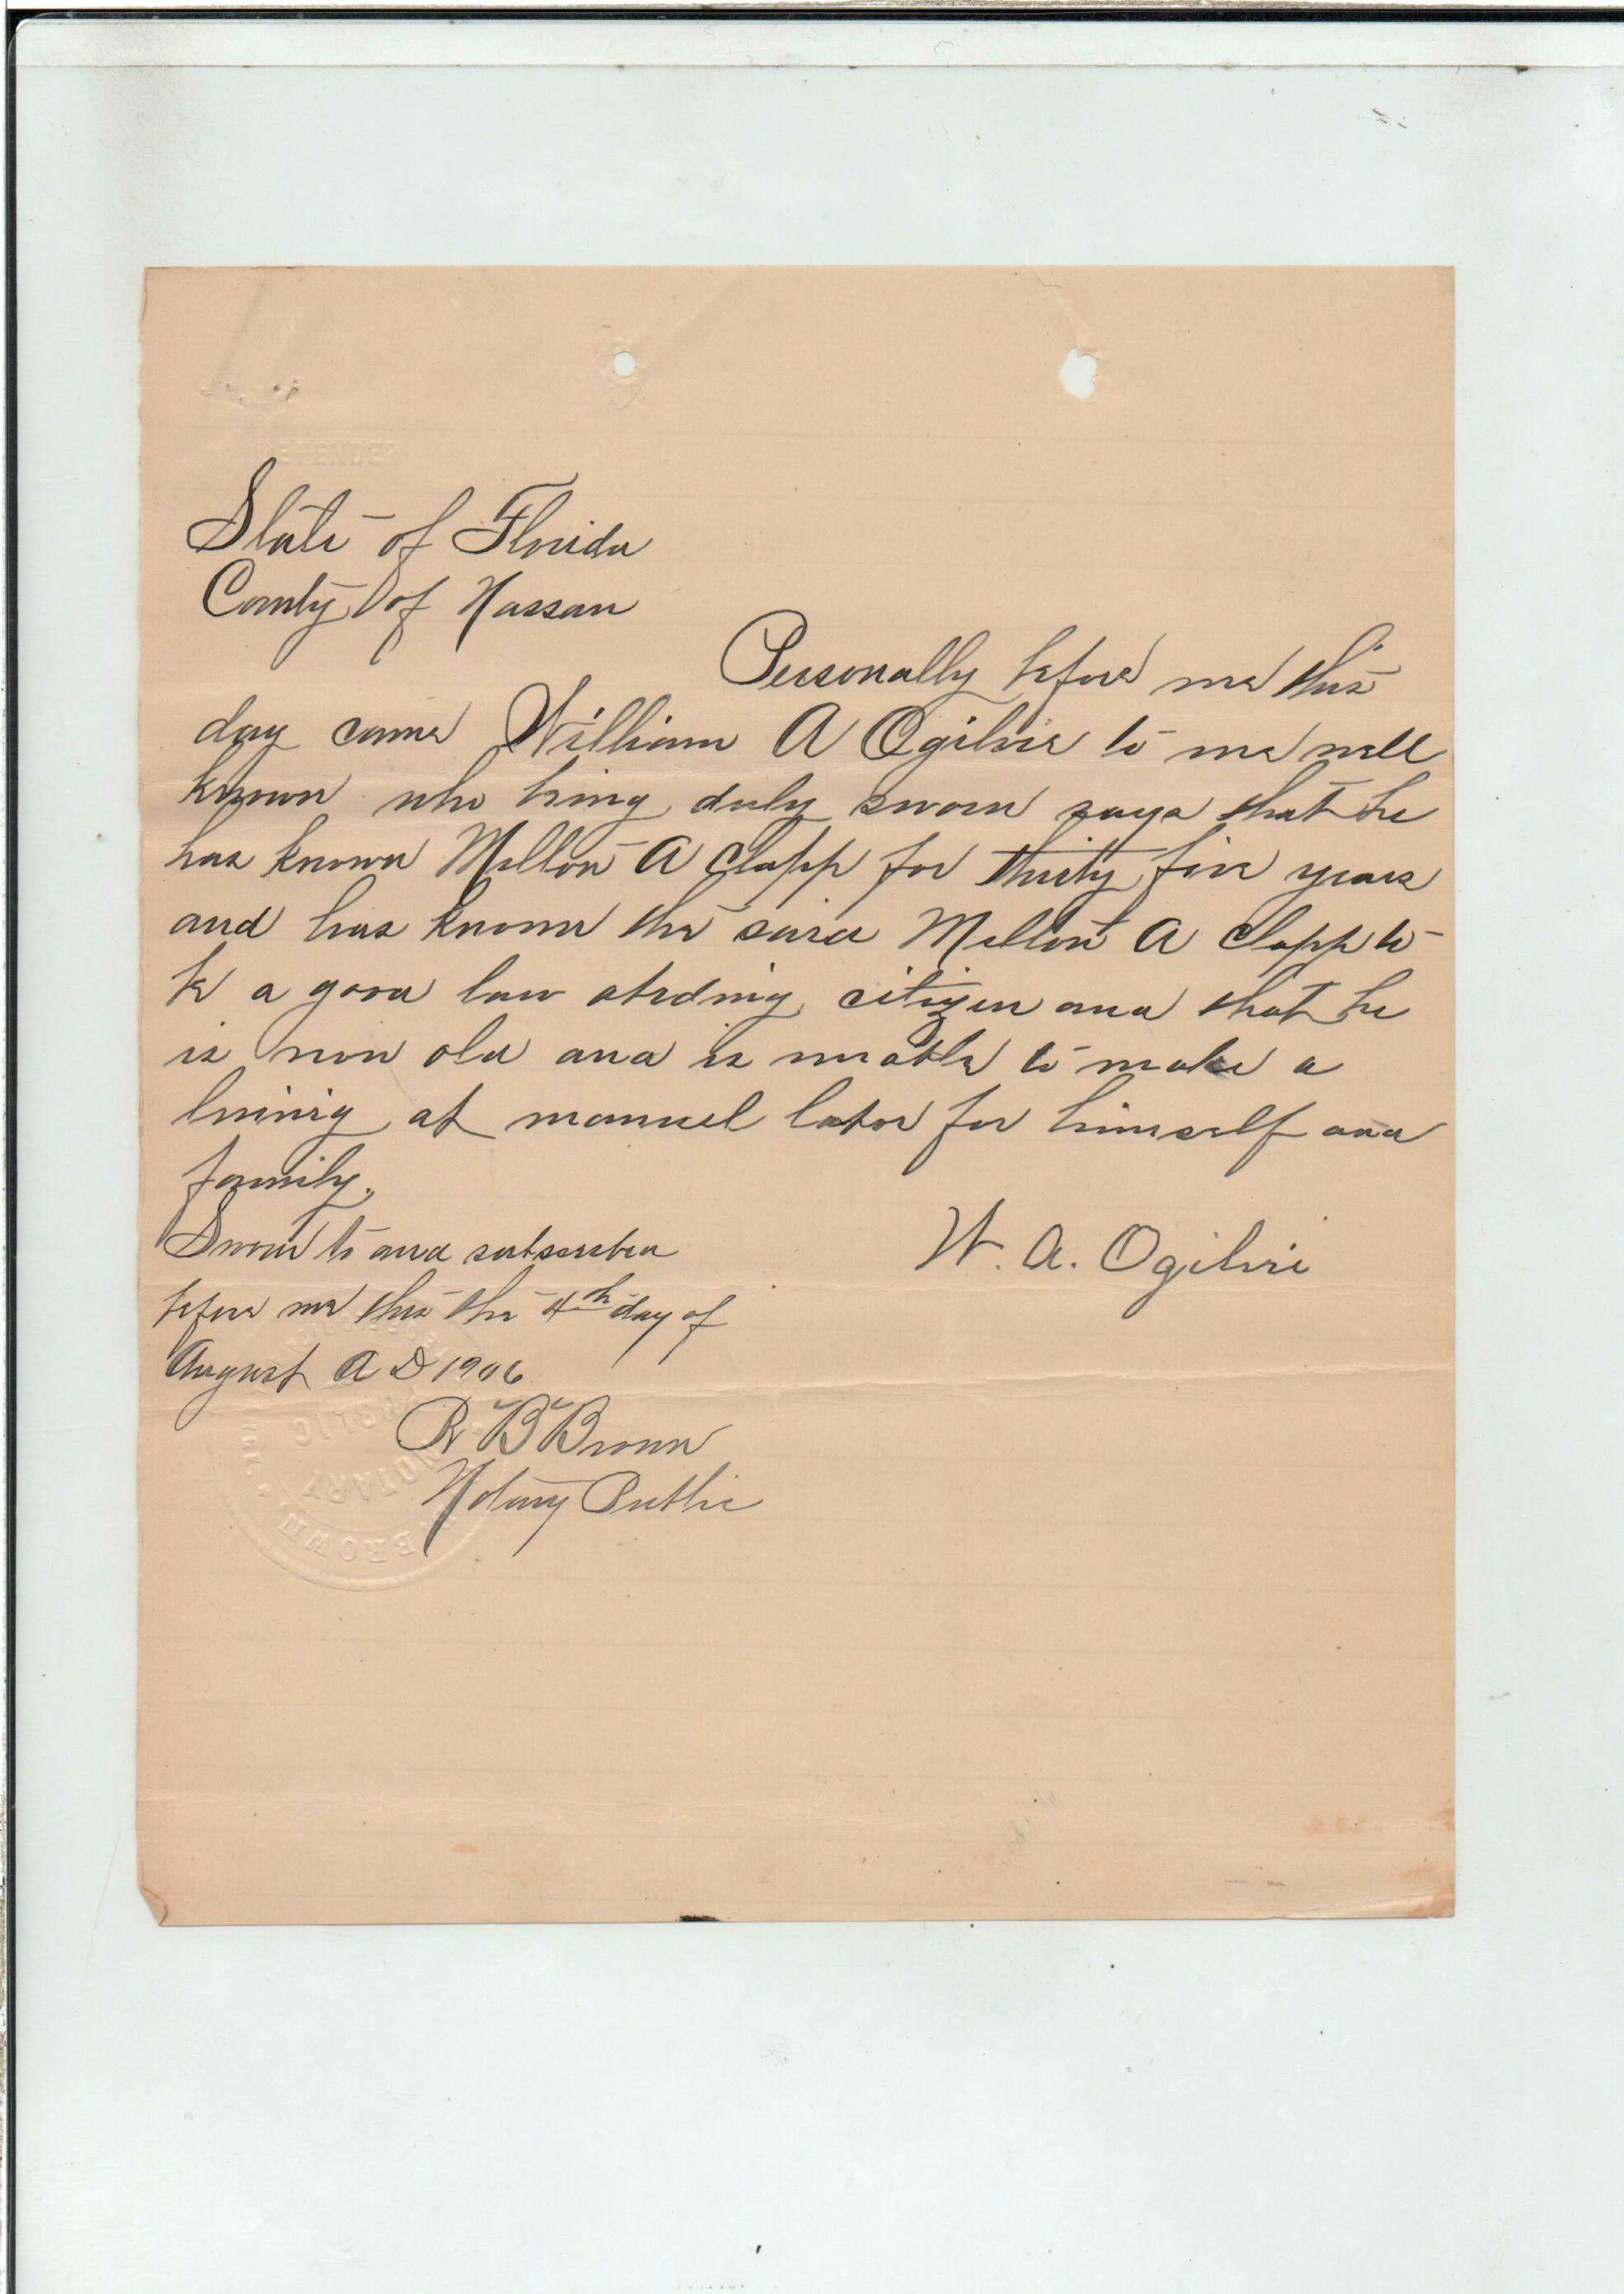 State of Florida
County of Nassau
Personally before me this
day came William A Ogilvie to me well
known who being duly sworn says that he
has known Milton A Clapp for thirty five years
and has known the said Milton A Clapp to
be a good law abiding citizen and that he
is now old and is unable to make a
living at manuel labor for himself and
family.
Sworn to and subscribed
before me this the 4th day of
August A D 1906
W. A. Ogilvie
R B Brown
Notary Public
BROWN
NOTARY
PUBLIC